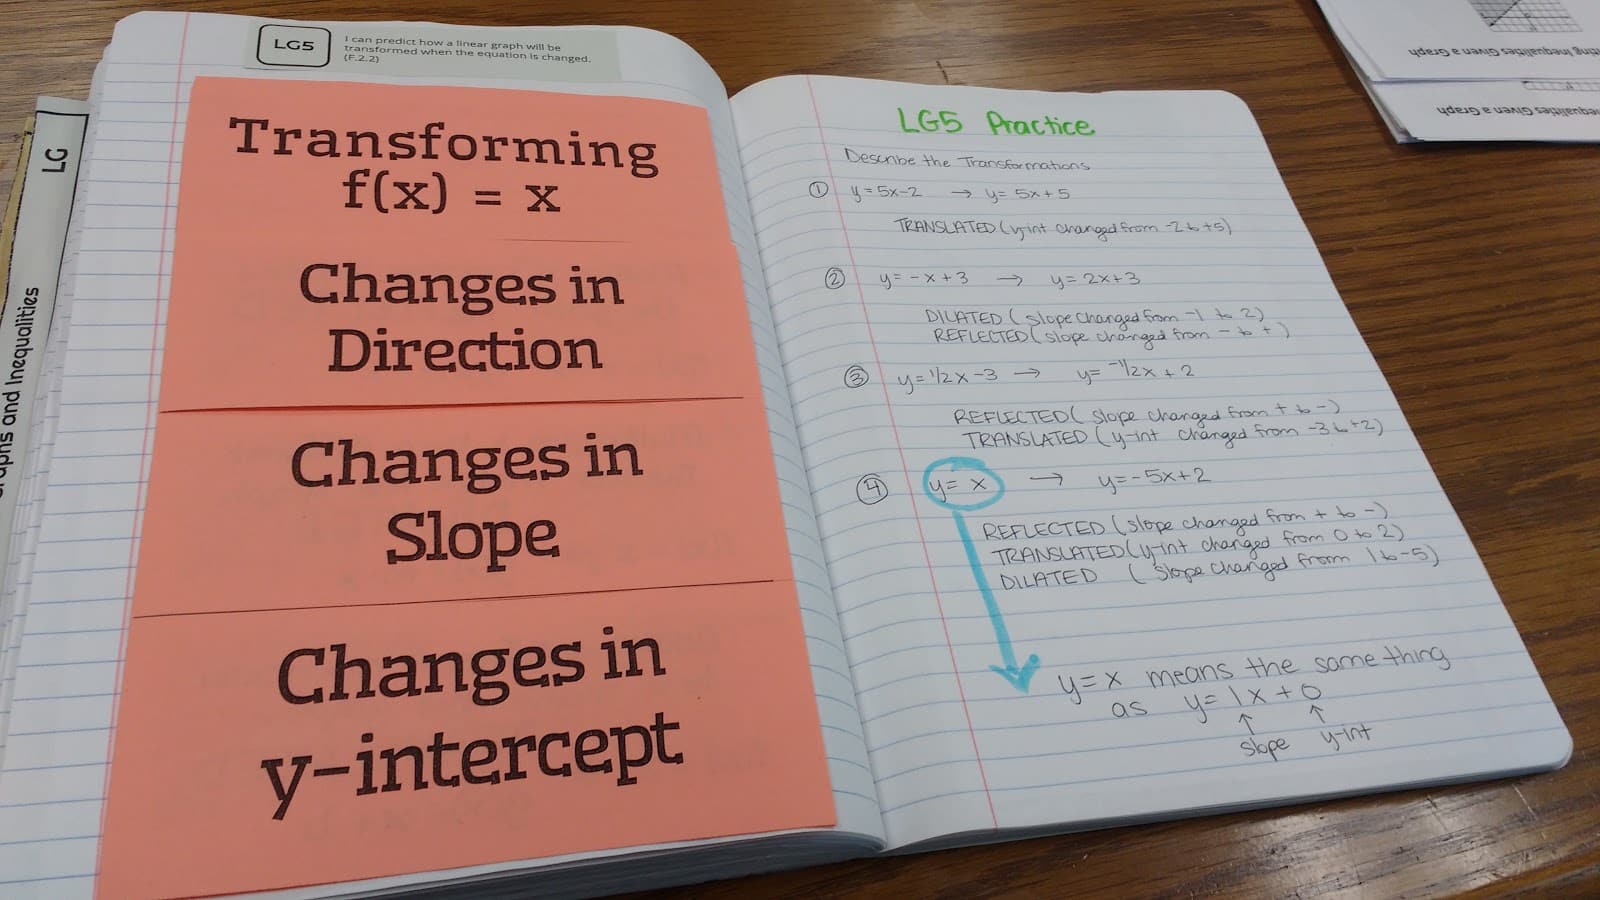 LG5
I can predict how a linear graph will be
transformed when the equation is changed.
(F.2.2)
Transforming
f(x) = x
Changes in
Direction
Changes in
Slope
Changes in
y-intercept
LG
and Inequalities
LG5 Practice
Describe the Transformations
① y=5x-2 → y=5x+5
TRANSLATED (y-int changed from -2 to +5)
② y=-x+3 → y=2x+3
DILATED (slope changed from -1 to 2)
REFLECTED (slope changed from - to +)
③ y=1/2x-3 → y=-1/2x+2
REFLECTED (slope changed from + to -)
TRANSLATED (y-int changed from -3 to +2)
④ y=x → y=-5x+2
REFLECTED (slope changed from + to -)
TRANSLATED (y-int changed from 0 to 2)
DILATED (slope changed from 1 to -5)
y=x means the same thing
as y=1x+0
↑ ↑
slope y-int
Inequalities Given a Graph
Given a Graph